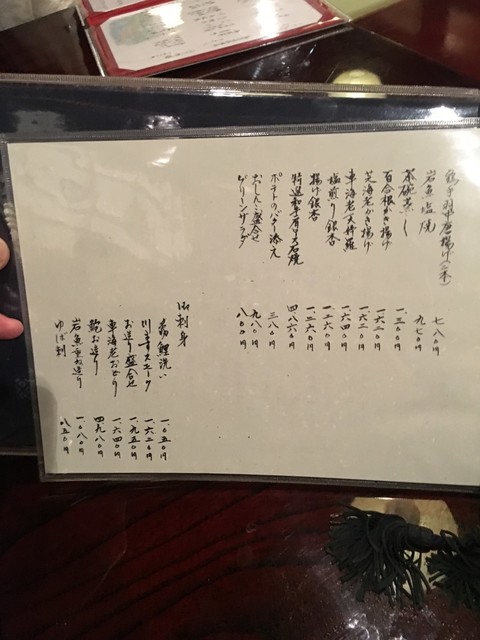 鶏手羽唐揚げ(二本) 七八〇円
岩魚塩焼 九七〇円
茶碗蒸し 一、三〇〇円
百合根かき揚げ 一、六二〇円
芝海老かき揚げ 一、六二〇円
車海老天婦羅 一、六四〇円
塩煎り銀杏 一、二六〇円
揚げ銀杏 一、二六〇円
特選和牛肩ロース石焼 四、八六〇円
ポテトのバター添え 三八〇円
おしんこ盛合せ 九八〇円
グリーンサラダ 八〇〇円
御刺身
鯉洗い 一、〇五〇円
川ますスモーク 一、六二〇円
お造り盛合せ 一、九五〇円
車海老おどり 一、六四〇円
鮑お造り 四、九八〇円
岩魚重ね造り 一、〇八〇円
ゆば刺 八五〇円